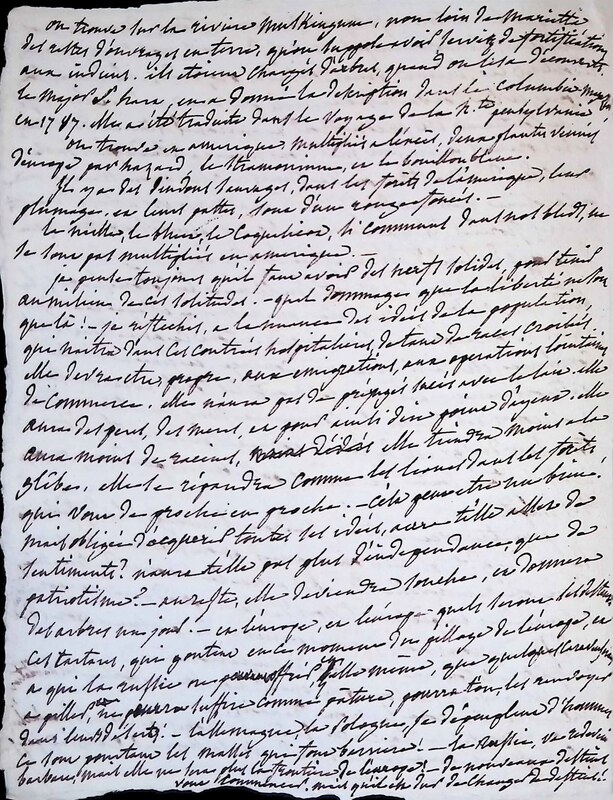 on trouve sur la rivière Muskingum, non loin de Mariette
des restes d'ouvrages en terre, qu'on suppose avoir servir de fortification
aux indiens. ils étoient chargés d'arbres, quand on les a découverts.
le major en a donné la description dans le columbia
en 1787. elle a été traduite dans le voyage de la h.te pensylvanie
on trouve en amerique multipliés à l'excès, deux plantes venues
d'europe par hazard. le stramonium, et le bouillon blanc.
Il y a des dindons sauvages, dans les forêts de l'amérique, leur
plumage, et leurs pattes, sont d'un rouge foncé. —
la nielle, le bluet, le Coquelicot, si communs dans nos bleds, ne
se sont pas multipliés en amerique —
je pense toujours qu'il faut avoir des nerfs solides, pour tenir
au milieu de ces solitudes. — quel dommage que la liberté ne soit
que là! — je réfléchis, a la nuance des idées de la population,
qui naitra dans ces contrées hospitalières, de tant de races croisées.
elle devra etre propre, aux emigrations, aux operations lointaines
de commerce. elle n'aura pas de préjugés sucés avec le lait. elle
aura des peres, des meres, et pour ainsi dire point d'ayeux. elle
aura moins de racines, elle tiendra moins a la
glèbe, elle se répandra comme les lions dans les forêts
qui vont de proche en proche. — cela peut etre un bien,
mais obligée d'acquerir toutes ses idées, aura t'elle assez de
sentiments? n'aura t'elle pas plus d'indépendance que de
patriotisme? — au reste, elle deviendra souche, et donnera
des arbres un jour. — et l'europe, et l'europe — quels seront ses destins
ces tartares, qui goutent en ce moment du pillage de l'europe, et
a qui la russie ne elle meme, que quelques
a piller, ne suffire comme pâture, pourra t'on, les renvoyer
dans leurs deserts? — l'allemagne la Pologne, se dépeuplent d'hommes
ce sont pourtant les masses qui font barriere! — la Russie, va redevenir
barbare, mais elle ne sera plus la frontière de l'europe! de nouveaux destins
vont commencer, mais qu'il est dur de changer de destins!